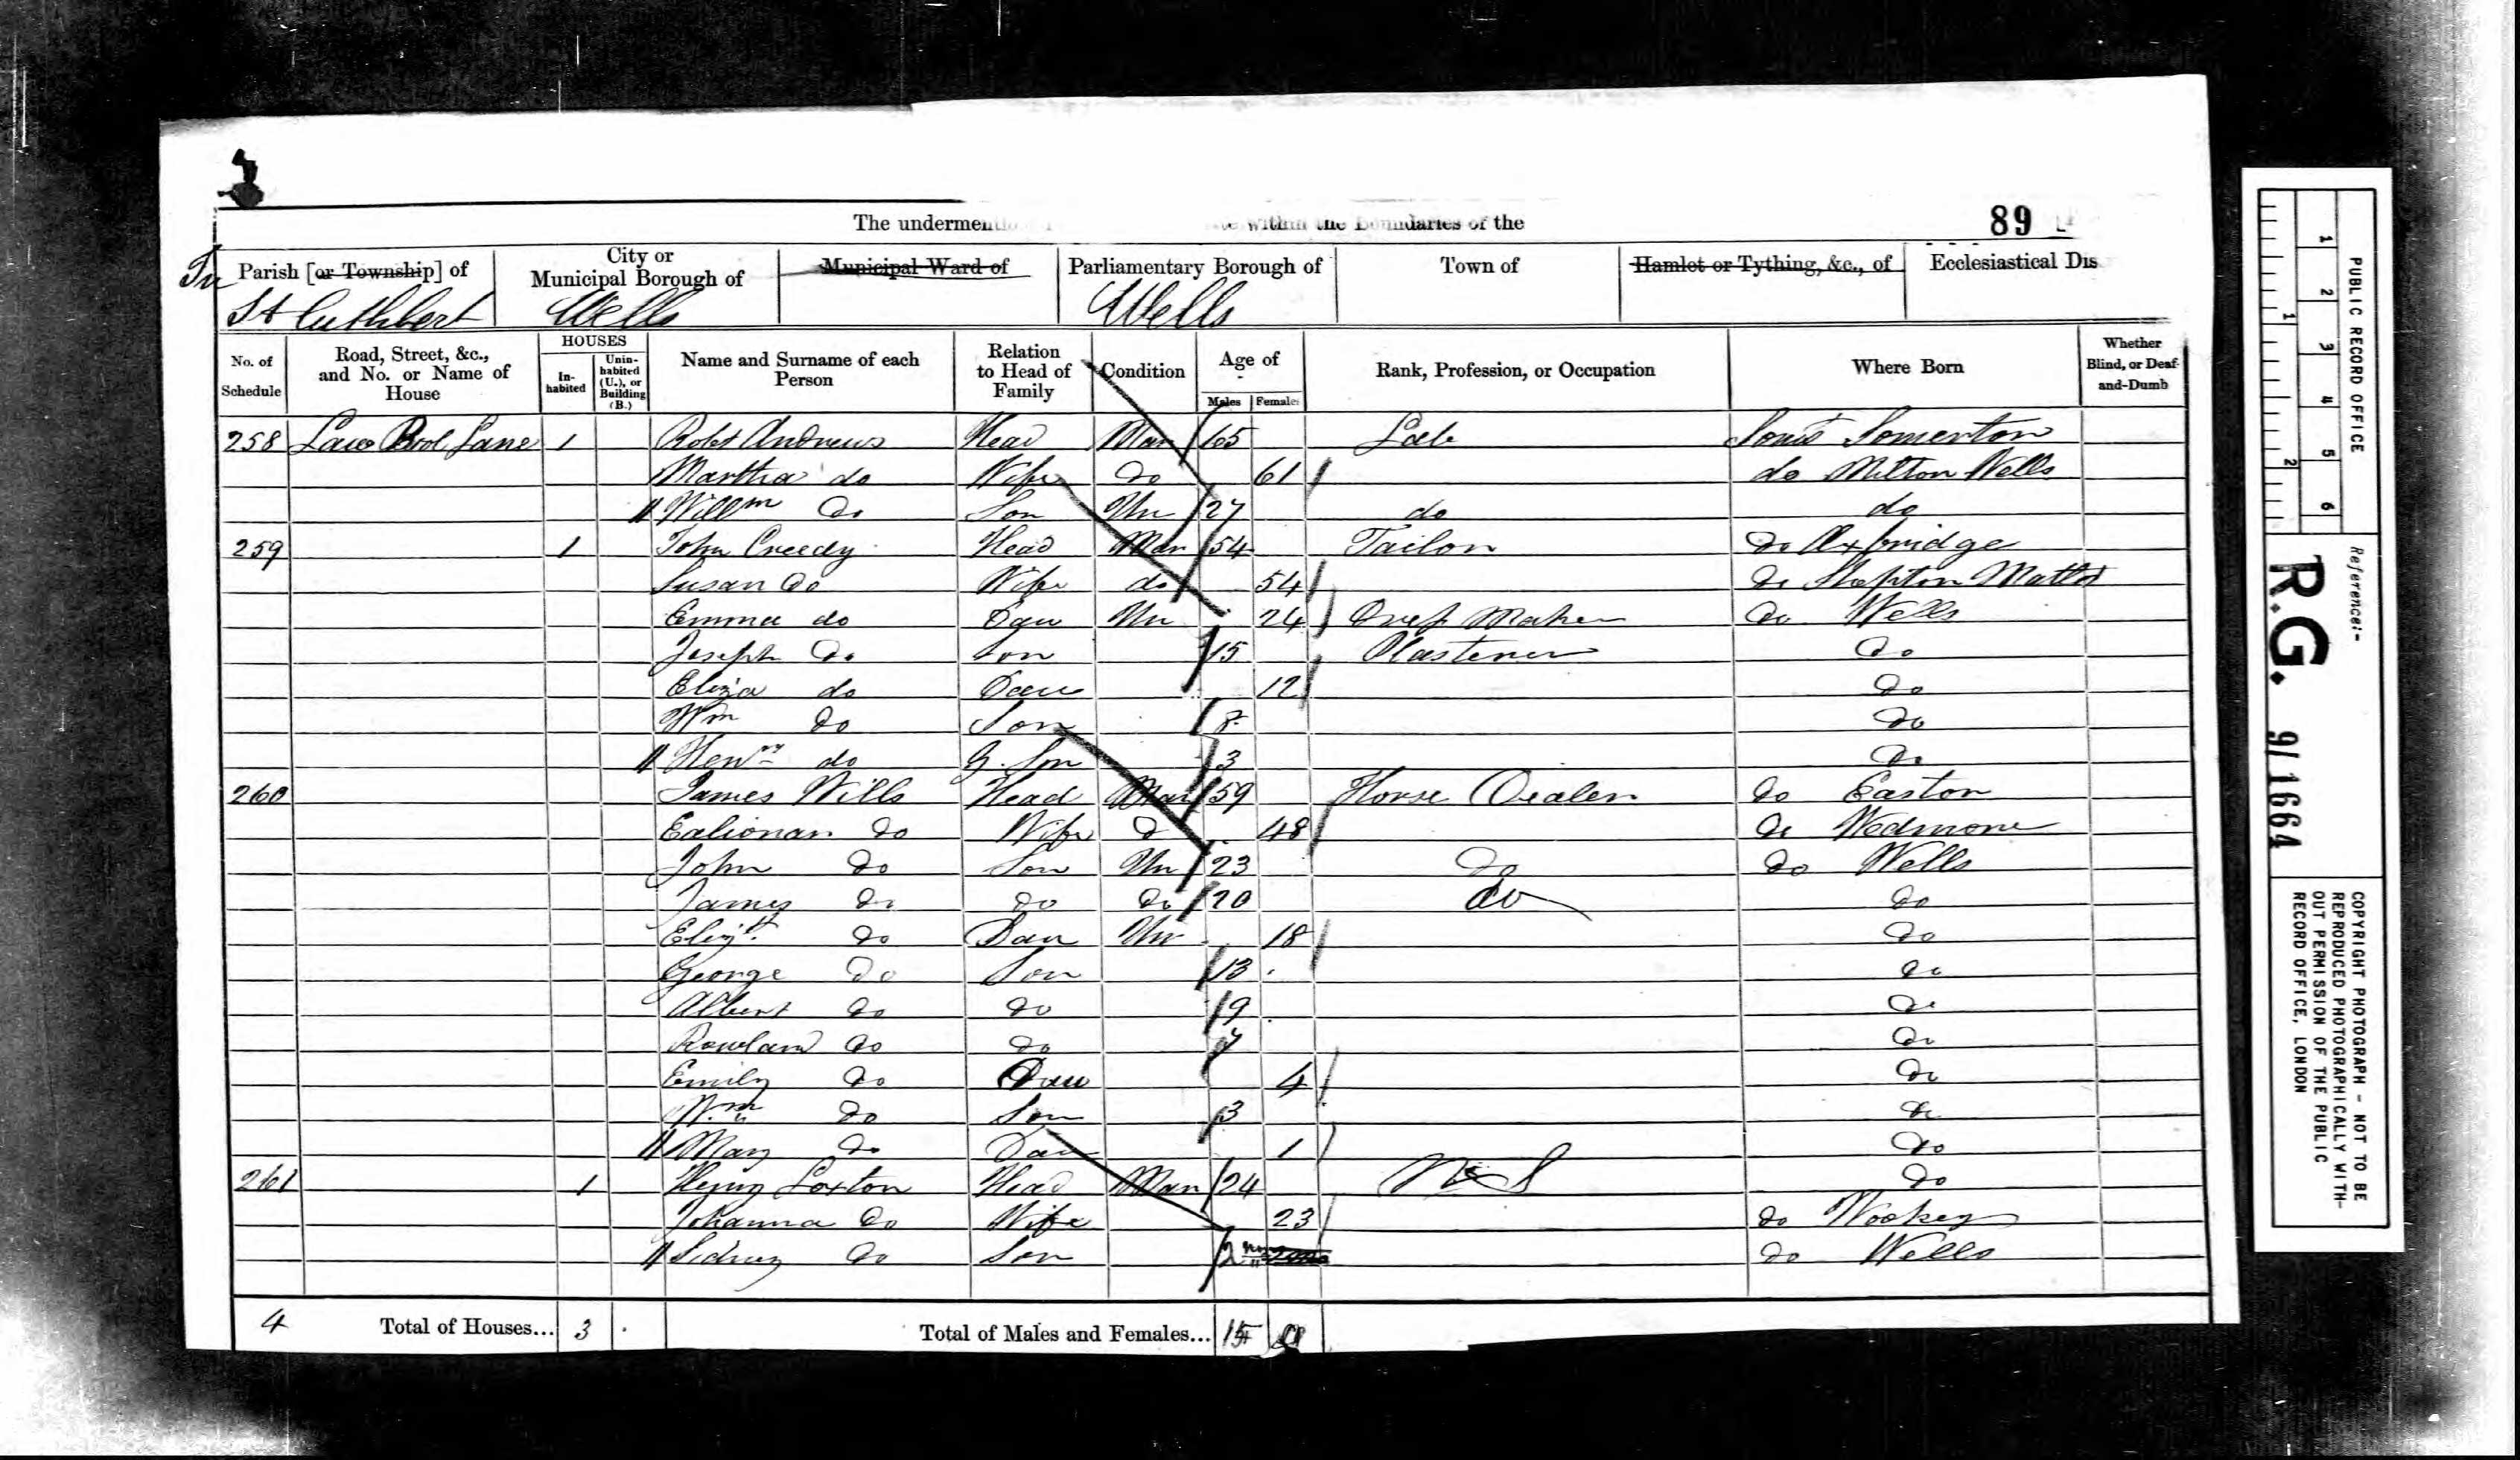 The undermenti within the Boundaries of the
89
In Parish [or Township] of
St Cuthbert
City or Municipal Borough of
Wells
Municipal Ward of
Parliamentary Borough of
Wells
Town of
Hamlet or Tything, &c., of
Ecclesiastical Dis
No. of Schedule
Road, Street, &c., and No. or Name of House
HOUSES
In-habited
Unin-habited (U.), or Building (B.)
Name and Surname of each Person
Relation to Head of Family
Condition
Age of
Males Females
Rank, Profession, or Occupation
Where Born
Whether Blind, or Deaf-and-Dumb
258 Lane 1 Robt Andrews Head Mar 65 Lab Somst Somerton
Martha do Wife do 61 do Milton Wells
Willm do Son Un 27 do do
259 1 John Creedy Head Mar 54 Tailor do Axbridge
Susan do Wife do 54 do Shepton Mallet
Emma do Dau Un 24 Dress Maker do Wells
Joseph do Son 15 Plasterer do
Eliza do Dau 12 do
Wm do Son 8 do
Henry do G. Son 3 do
260 James Wills Head Mar 59 Horse Dealer do Easton
do Wife do 48 do Wedmore
John do Son Un 23 do do Wells
James do do do 20 do do
Elizth do Dau Un 18 do
George do Son 13 do
Albert do do 9 do
Rowland do do 7 do
Emily do Dau 4 do
Wm do Son 3 do
Mary do Dau 1 do
261 1 Henry Loxton Head Mar 24 do
Johanna do Wife 23 do Wookey
Sidney do Son 2 do Wells
4 Total of Houses... 3 Total of Males and Females... 15
PUBLIC RECORD OFFICE
1 2 3 4 5 6
1 2
Reference:-
R.G. 9/1664
COPYRIGHT PHOTOGRAPH - NOT TO BE
REPRODUCED PHOTOGRAPHICALLY WITH-
OUT PERMISSION OF THE PUBLIC
RECORD OFFICE, LONDON